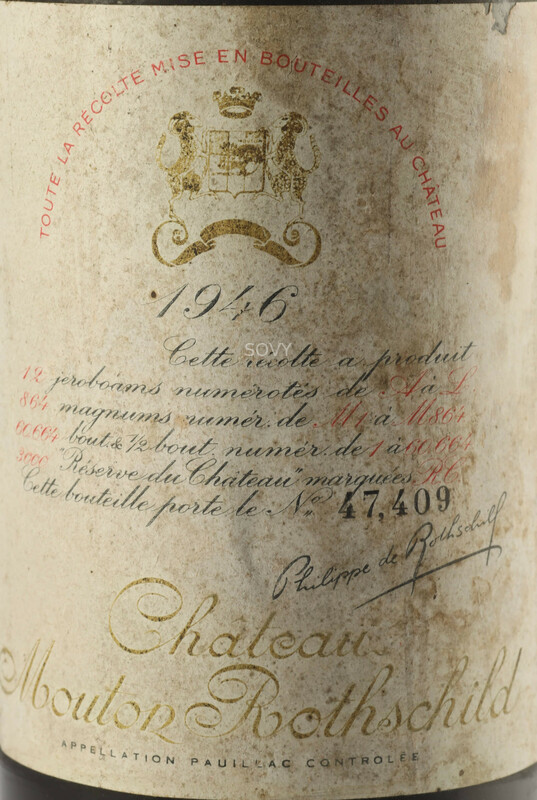 TOUTE LA RÉCOLTE MISE EN BOUTEILLES AU CHÂTEAU
1946
SOVY
Cette récolte a produit
12 jeroboams numérotés de A à L
864 magnums numér. de M1 à M864
bout. & 1/2 bout. numér. de 1 à
3000 "Réserve du Château" marquées R.C.
Cette bouteille porte le No. 47,409
Philippe de Rothschild
Château
Mouton Rothschild
APPELLATION PAUILLAC CONTROLÉE